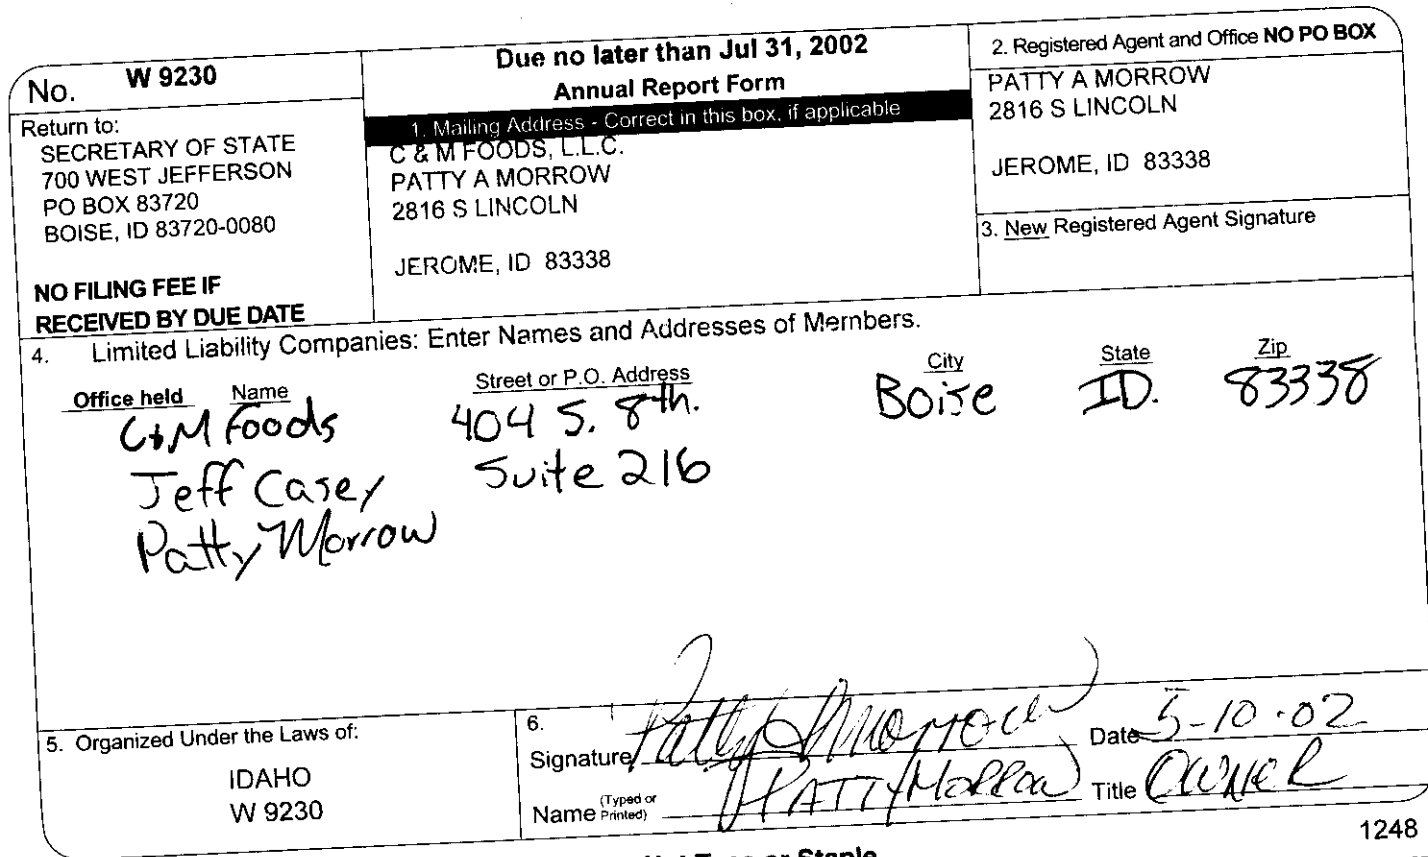 No. W 9230
Return to:
SECRETARY OF STATE
700 WEST JEFFERSON
PO BOX 83720
BOISE, ID 83720-0080
NO FILING FEE IF
RECEIVED BY DUE DATE
Due no later than Jul 31, 2002
Annual Report Form
1. Mailing Address - Correct in this box, if applicable
C & M FOODS, L.L.C.
PATTY A MORROW
2816 S LINCOLN
JEROME, ID 83338
2. Registered Agent and Office NO PO BOX
PATTY A MORROW
2816 S LINCOLN
JEROME, ID 83338
3. New Registered Agent Signature
4. Limited Liability Companies: Enter Names and Addresses of Members.
Office held Name Street or P.O. Address City State Zip
C+M Foods 404 S. 8th. Boise ID. 83338
Jeff Casey Suite 216
Patty Morrow
5. Organized Under the Laws of:
IDAHO
W 9230
6.
Signature Patty A Morrow Date 5-10-02
Name (Typed or Printed) PATTY MORROW Title OWNER
1248
or Staple